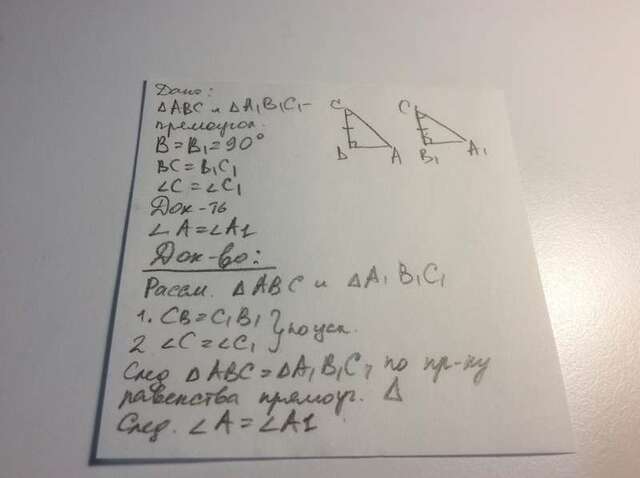 Дано:
△ABC и △A₁B₁C₁-
прямоугол.
B = B₁ = 90°
BC = B₁C₁
∠C = ∠C₁
Док-ть
∠A = ∠A1
Док-во:
Рассм. △ABC и △A₁B₁C₁
1. CB = C₁B₁ } по усл.
2 ∠C = ∠C₁
След △ABC = △A₁B₁C₁ по пр-ку
равенства прямоуг. △
След. ∠A = ∠A1
C C
B A B₁ A₁